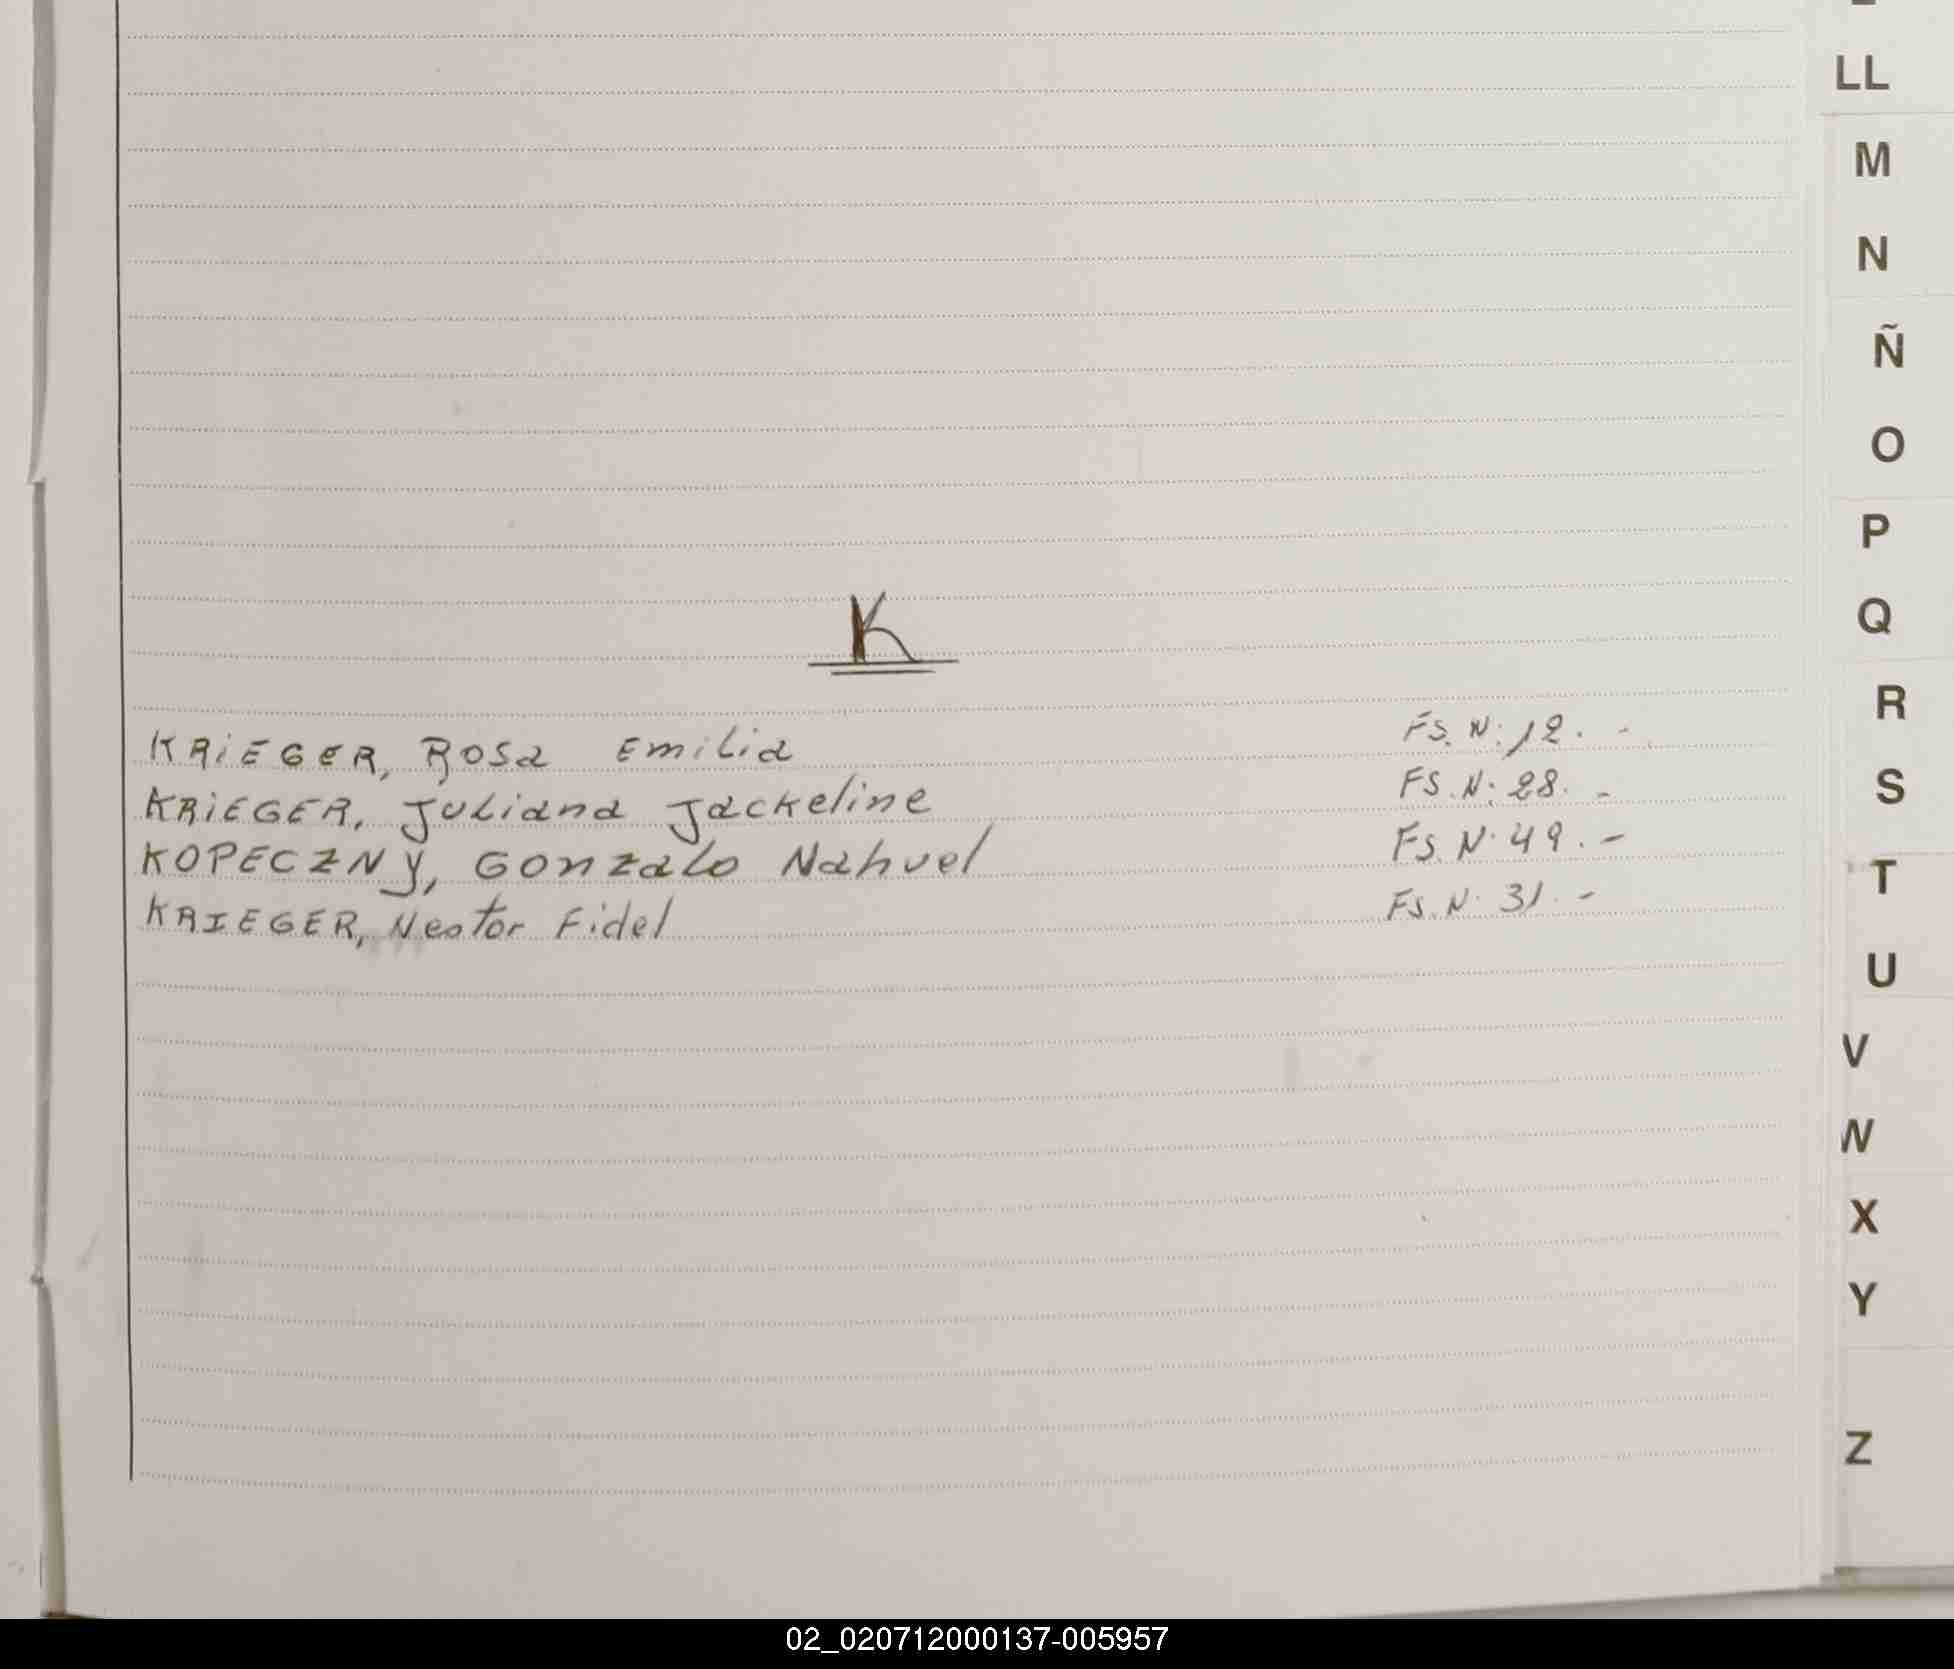 K
KRIEGER, Rosa Emilia FS. N: 12. -
KRIEGER, Juliana Jackeline FS. N: 28. -
KOPECZNY, Gonzalo Nahuel FS. N. 49. -
KRIEGER, Nestor Fidel FS. N. 31. -
LL
M
N
Ñ
O
P
Q
R
S
T
U
V
W
X
Y
Z
02_020712000137-005957